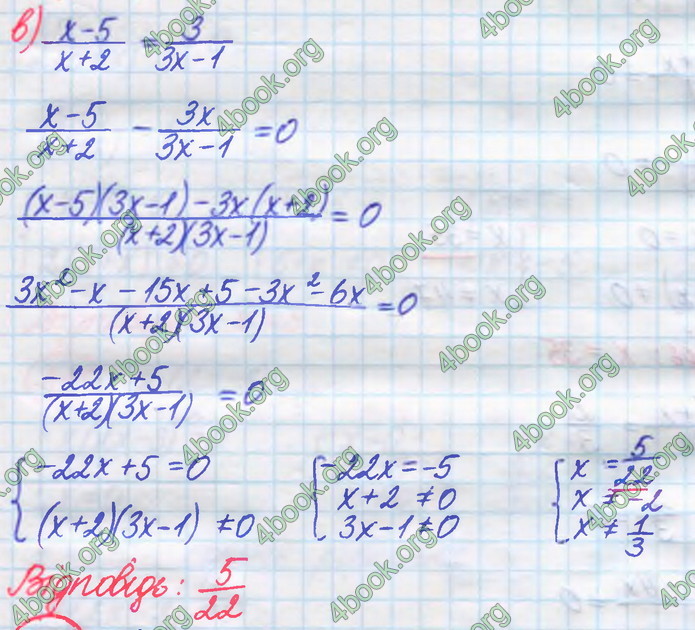 в) (x-5)/(x+2) = 3/(3x-1)
(x-5)/(x+2) - 3x/(3x-1) = 0
((x-5)(3x-1)-3x(x+2))/((x+2)(3x-1)) = 0
(3x²-x-15x+5-3x²-6x)/((x+2)(3x-1)) = 0
(-22x+5)/((x+2)(3x-1)) = 0
{ -22x+5=0
(x+2)(3x-1) ≠0
{ -22x=-5
x+2 ≠0
3x-1≠0
{ x = 5/22
x ≠ -2
x ≠ 1/3
Відповідь: 5/22
4book.org